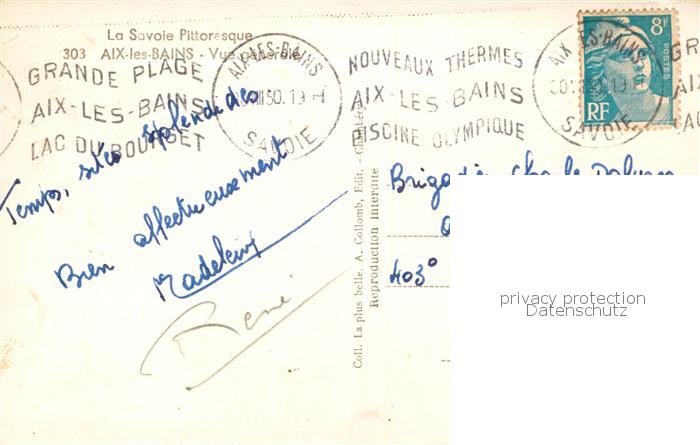 La Savoie Pittoresque
303 AIX-les-BAINS - Vue générale
GRANDE PLAGE
AIX-LES-BAINS
LAC DU BOURGET
AIX-LES-BAINS
50.19
SAVOIE
NOUVEAUX THERMES
AIX-LES-BAINS
PISCINE OLYMPIQUE
AIX-LES-BAINS
SAVOIE
8F
POSTES
RF
GR
AIX
LAC
Temps, sites splendides
Bien affectueusement
Madeleine
René
Coll. La plus belle. A. Collomb, Edit. -
Reproduction interdite
Brigadier
403°
privacy protection
Datenschutz